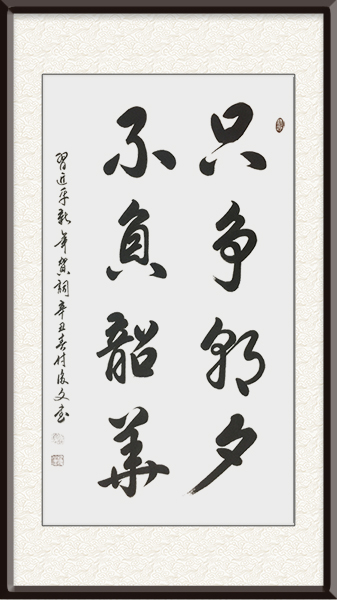 只争朝夕
不负韶华
習近平新年贺詞辛丑春付俊文书